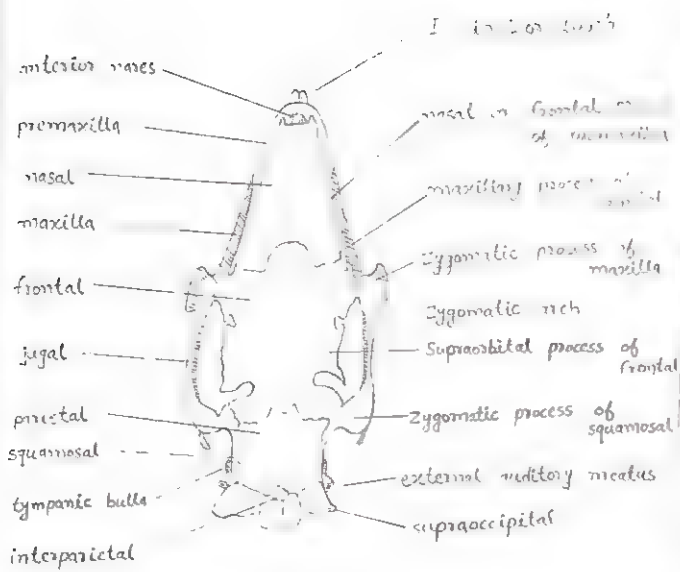 anterior nares
premaxilla
nasal
maxilla
frontal
jugal
parietal
squamosal
tympanic bulla
interparietal
I
nasal in frontal
of
maxillary process
Zygomatic process of
maxilla
Zygomatic arch
Supraorbital process of
frontal
Zygomatic process of
squamosal
external auditory meatus
supraoccipital